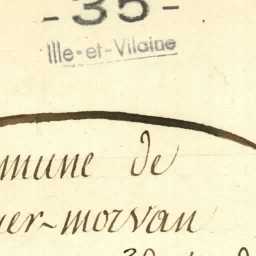 - 35 -
Ille-et-Vilaine
mune de
er-morvan